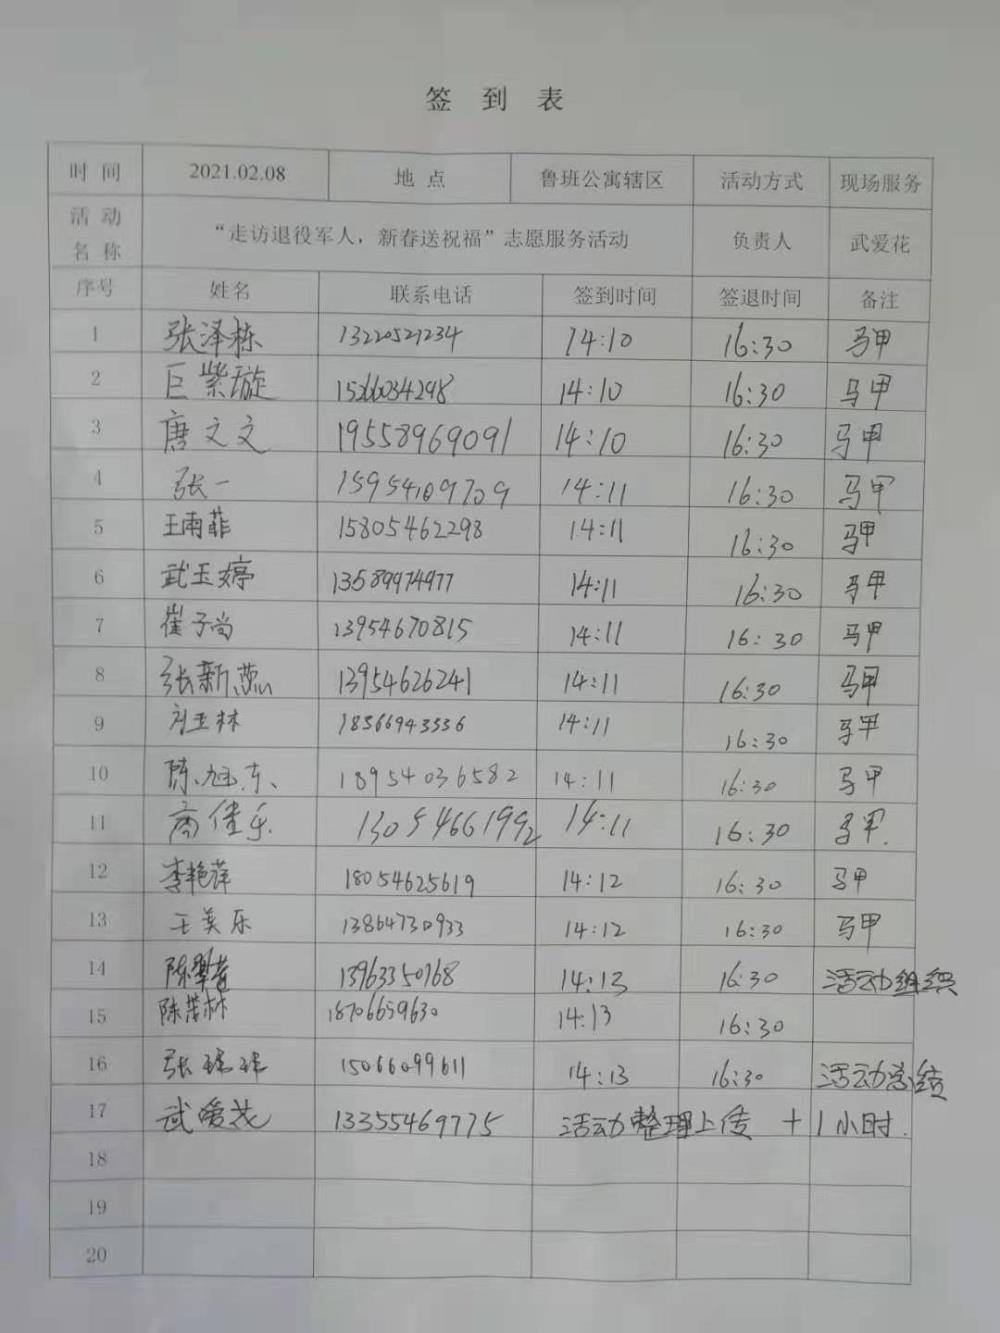 签 到 表
时 间 2021.02.08 地 点 鲁班公寓辖区 活动方式 现场服务
活 动 名 称 “走访退役军人，新春送祝福”志愿服务活动 负责人 武爱花
序号 姓名 联系电话 签到时间 签退时间 备注
1 张泽栋 13220521234 14:10 16:30 马甲
2 巨紫璇 15266034298 14:10 16:30 马甲
3 唐文文 19558969091 14:10 16:30 马甲
4 张一 15954109709 14:11 16:30 马甲
5 王雨菲 15805462298 14:11 16:30 马甲
6 武玉婷 13589974977 14:11 16:30 马甲
7 崔子尚 13954670815 14:11 16:30 马甲
8 张新蕊 13954626241 14:11 16:30 马甲
9 刘玉林 18566943336 14:11 16:30 马甲
10 陈旭东 18954036582 14:11 16:30 马甲
11 商佳乐 13054661992 14:11 16:30 马甲.
12 李艳萍 18054625619 14:12 16:30 马甲
13 王美乐 13864730933 14:12 16:30 马甲
14 13963350768 14:13 16:30 活动组织
15 18706659630 14:13 16:30
16 张瑞瑞 15066099611 14:13 16:30 活动总结
17 武爱花 13355469775 活动整理上传 +1小时.
18
19
20